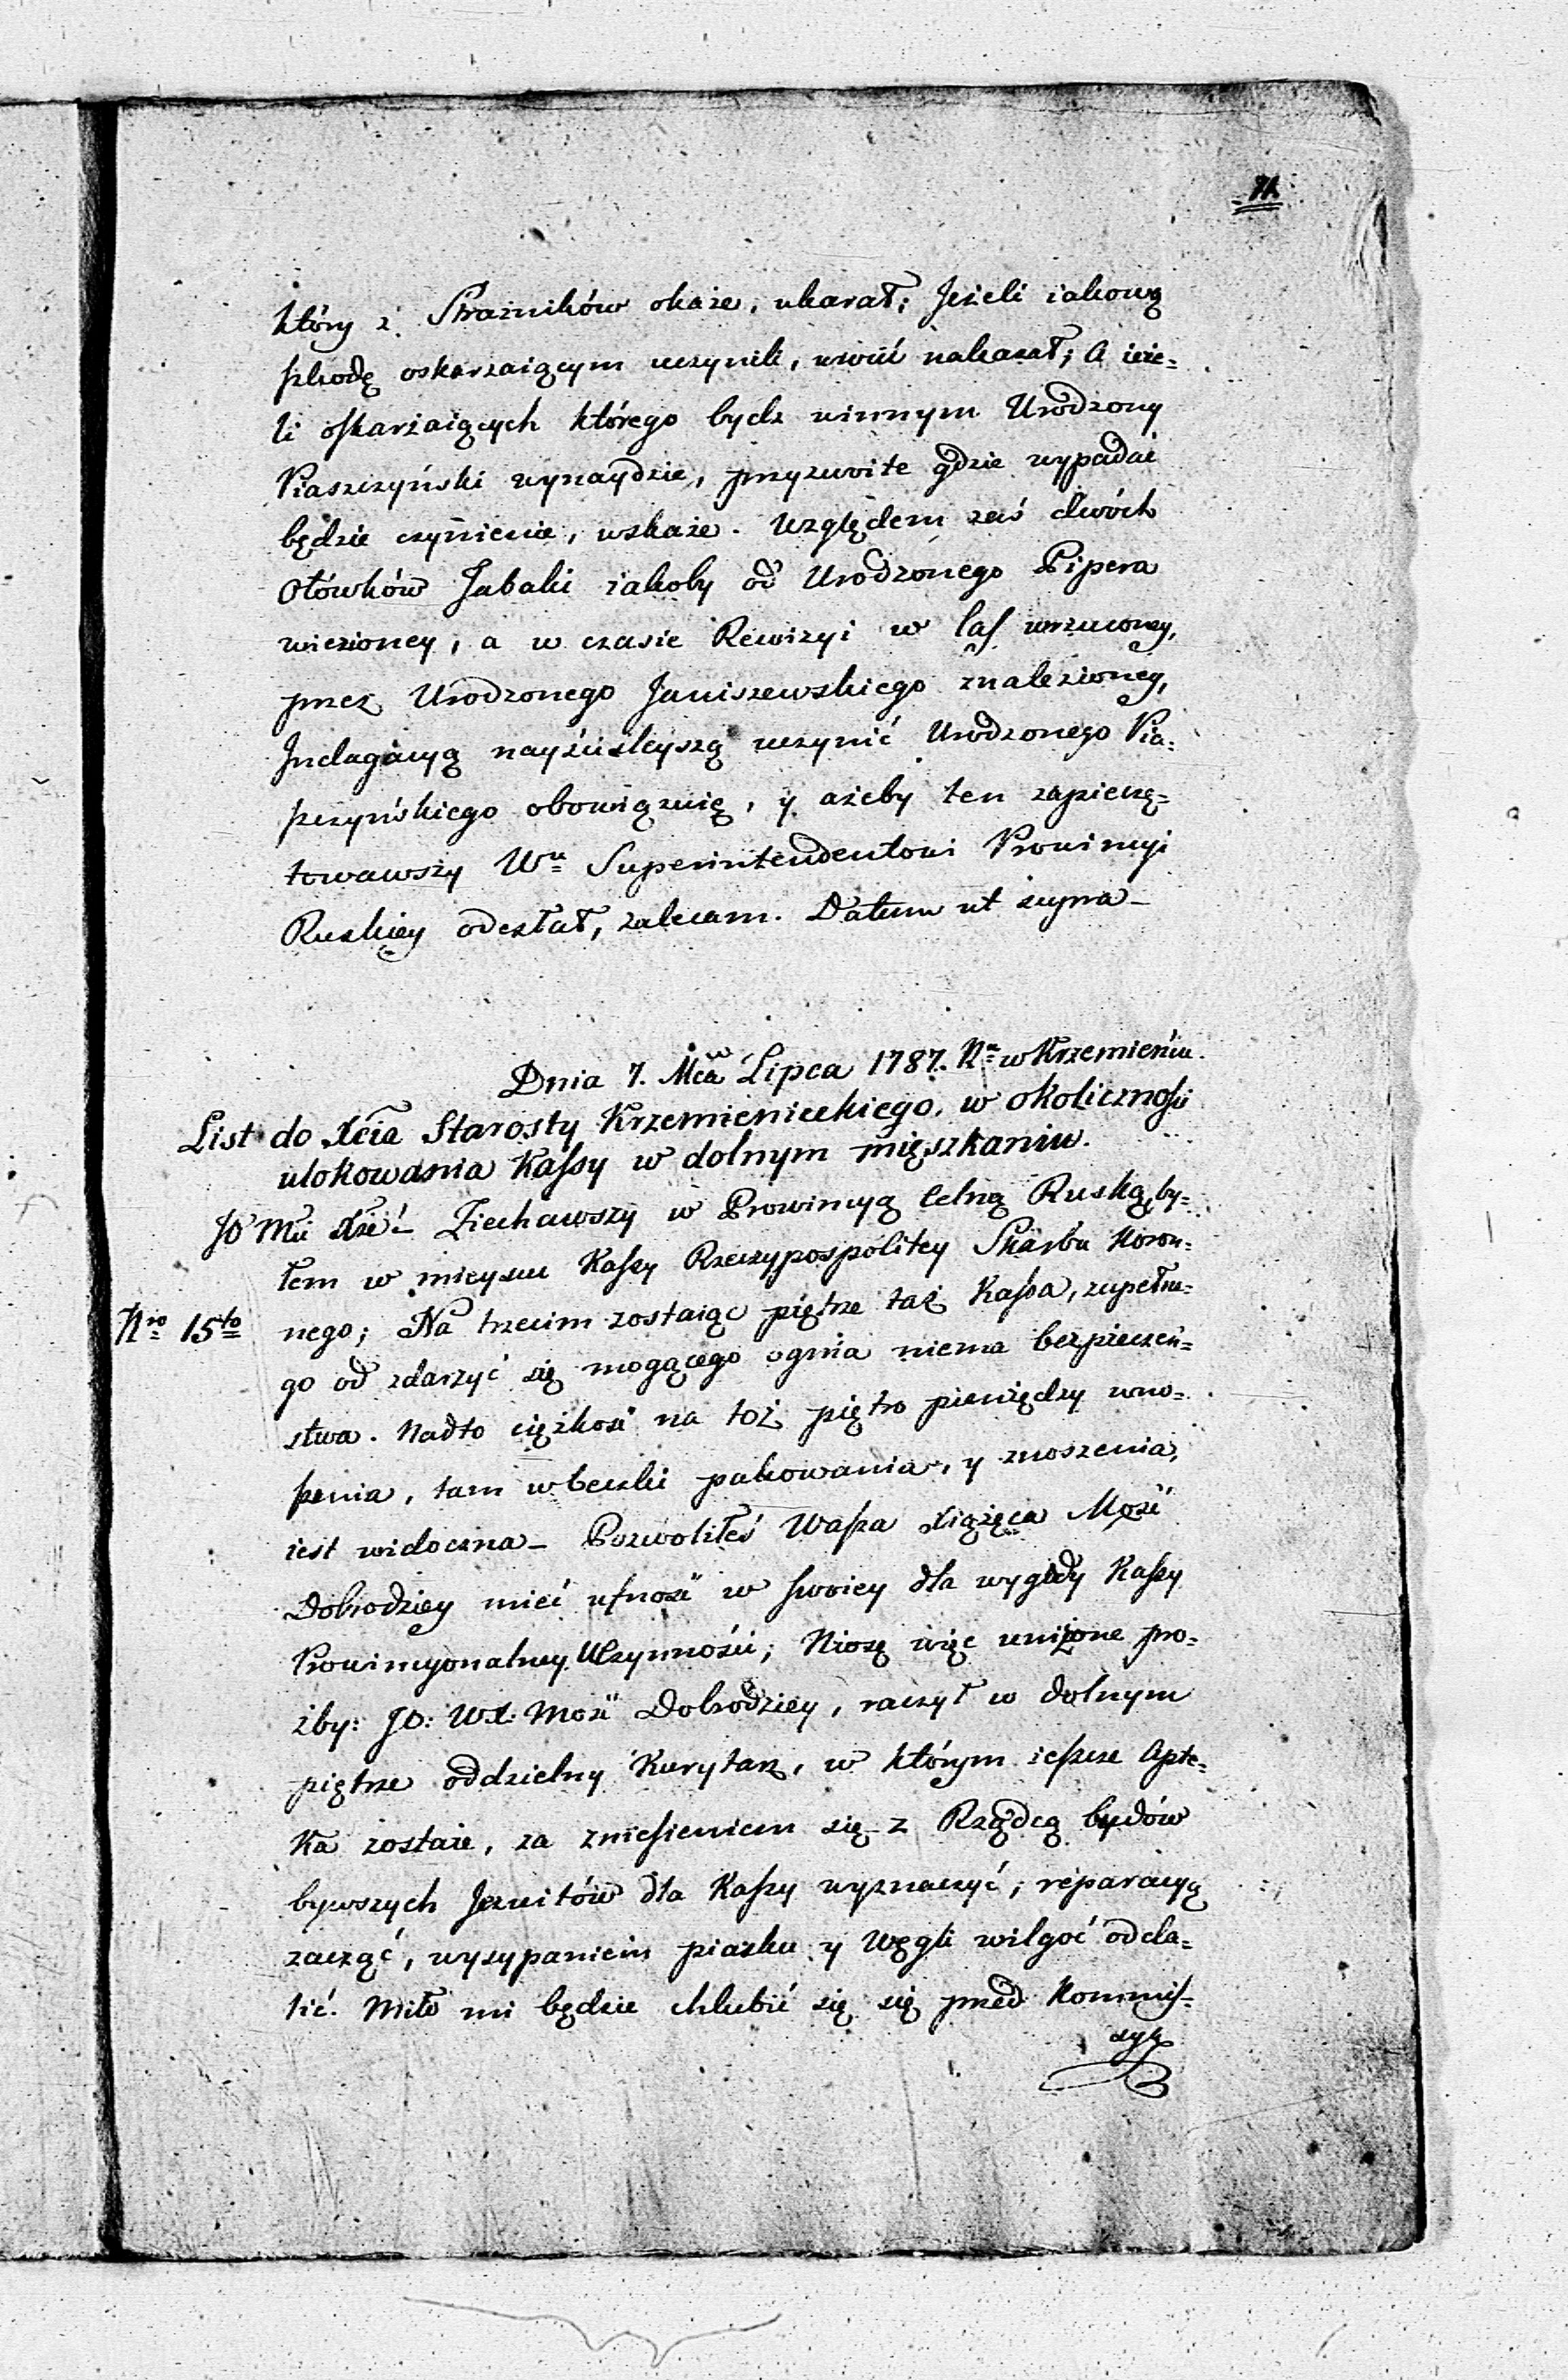 71
który z Strażników okaże, ukarał; Jeżeli iakową
szkodę oskarzaiącym uczynili, wrócić nakazał; A ieże=
li oskarżaiących którego bydz winnym Urodzony
Piaszczyński wynaydzie, przyzwoite gdzie wypadać
będzie czynienie, wskaże. Względem zaś dwóch
Ołówków Tabaki iakoby od Urodzonego Pipera
wiezioney, a w czasie Rewizyi w las wrzuconey,
przez Urodzonego Janiszewskiego znalezioney,
Indagacyą nayściśleyszą uczynić Urodzonego Pia=
szczyńskiego obowiązuię, y ażeby ten zapieczę=
towawszy Wu Superintendentowi Prowincyi
Ruskiey odesłał, zalecam. Datum ut supra—
Dnia 7. Mca Lipca 1787. Ru w Krzemieńcu.
List do Xcia Starosty Krzemienieckiego, w okoliczności
ulokowania Kassy w dolnym mięszkaniu.
JO Mci Xże! Ziechawszy w Prowincyą Celną Ruską, by=
łem w mieyscu Kassy Rzeczypospolitey Skarbu Koron=
Nro 15to nego; Na trzecim zostaiąc piętrze taż Kassa, zupełne=
go od zdarzyć się mogącego ognia niema bezpieczeń=
stwa. Nadto ciężkość na toż piętro pieniędzy wno=
szenia, tam w beczki pakowania, y znoszenia,
iest widoczna— Pozwoliłeś Wasza Xiążęca Mość
Dobrodziey mieć ufność w swoiey dla wygody Kassy
Prowincyonalney Uczynności; Niosę więc uniżone pro=
źby: JO: WX: Mość Dobrodziey, raczył w dolnym
piętrze oddzielny Kurytarz, w którym ieszcze Apte=
ka zostaie, za zniesieniem się z Rządcą budów
bywszych Jezuitów dla Kassy wyznaczyć; reparacyą
zacząć, wysypaniem piasku y Węgli wilgoć odda=
lić. Miło mi będzie chlubić się się przed Kommis=
syą